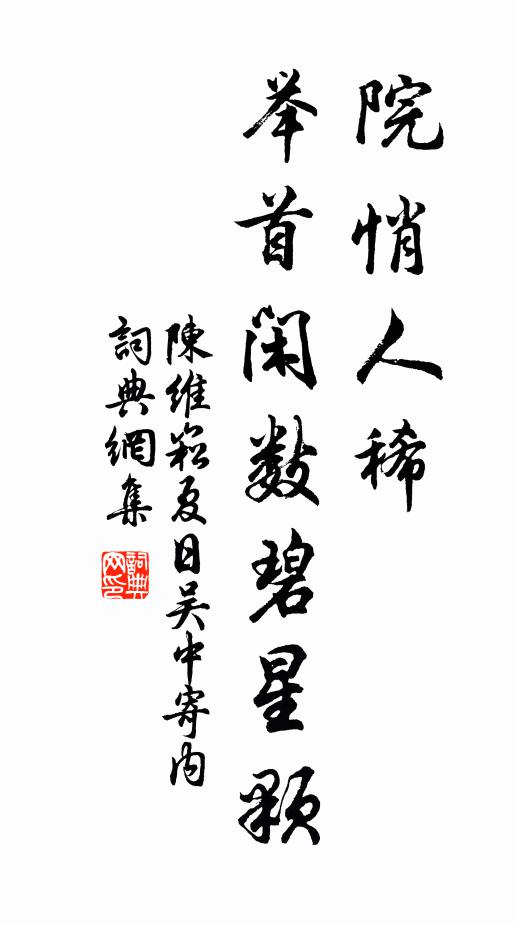 院悄人稀
举首闲数碧星颗
陳維崧夏日吴中寄内
詞典網集
詞典网印